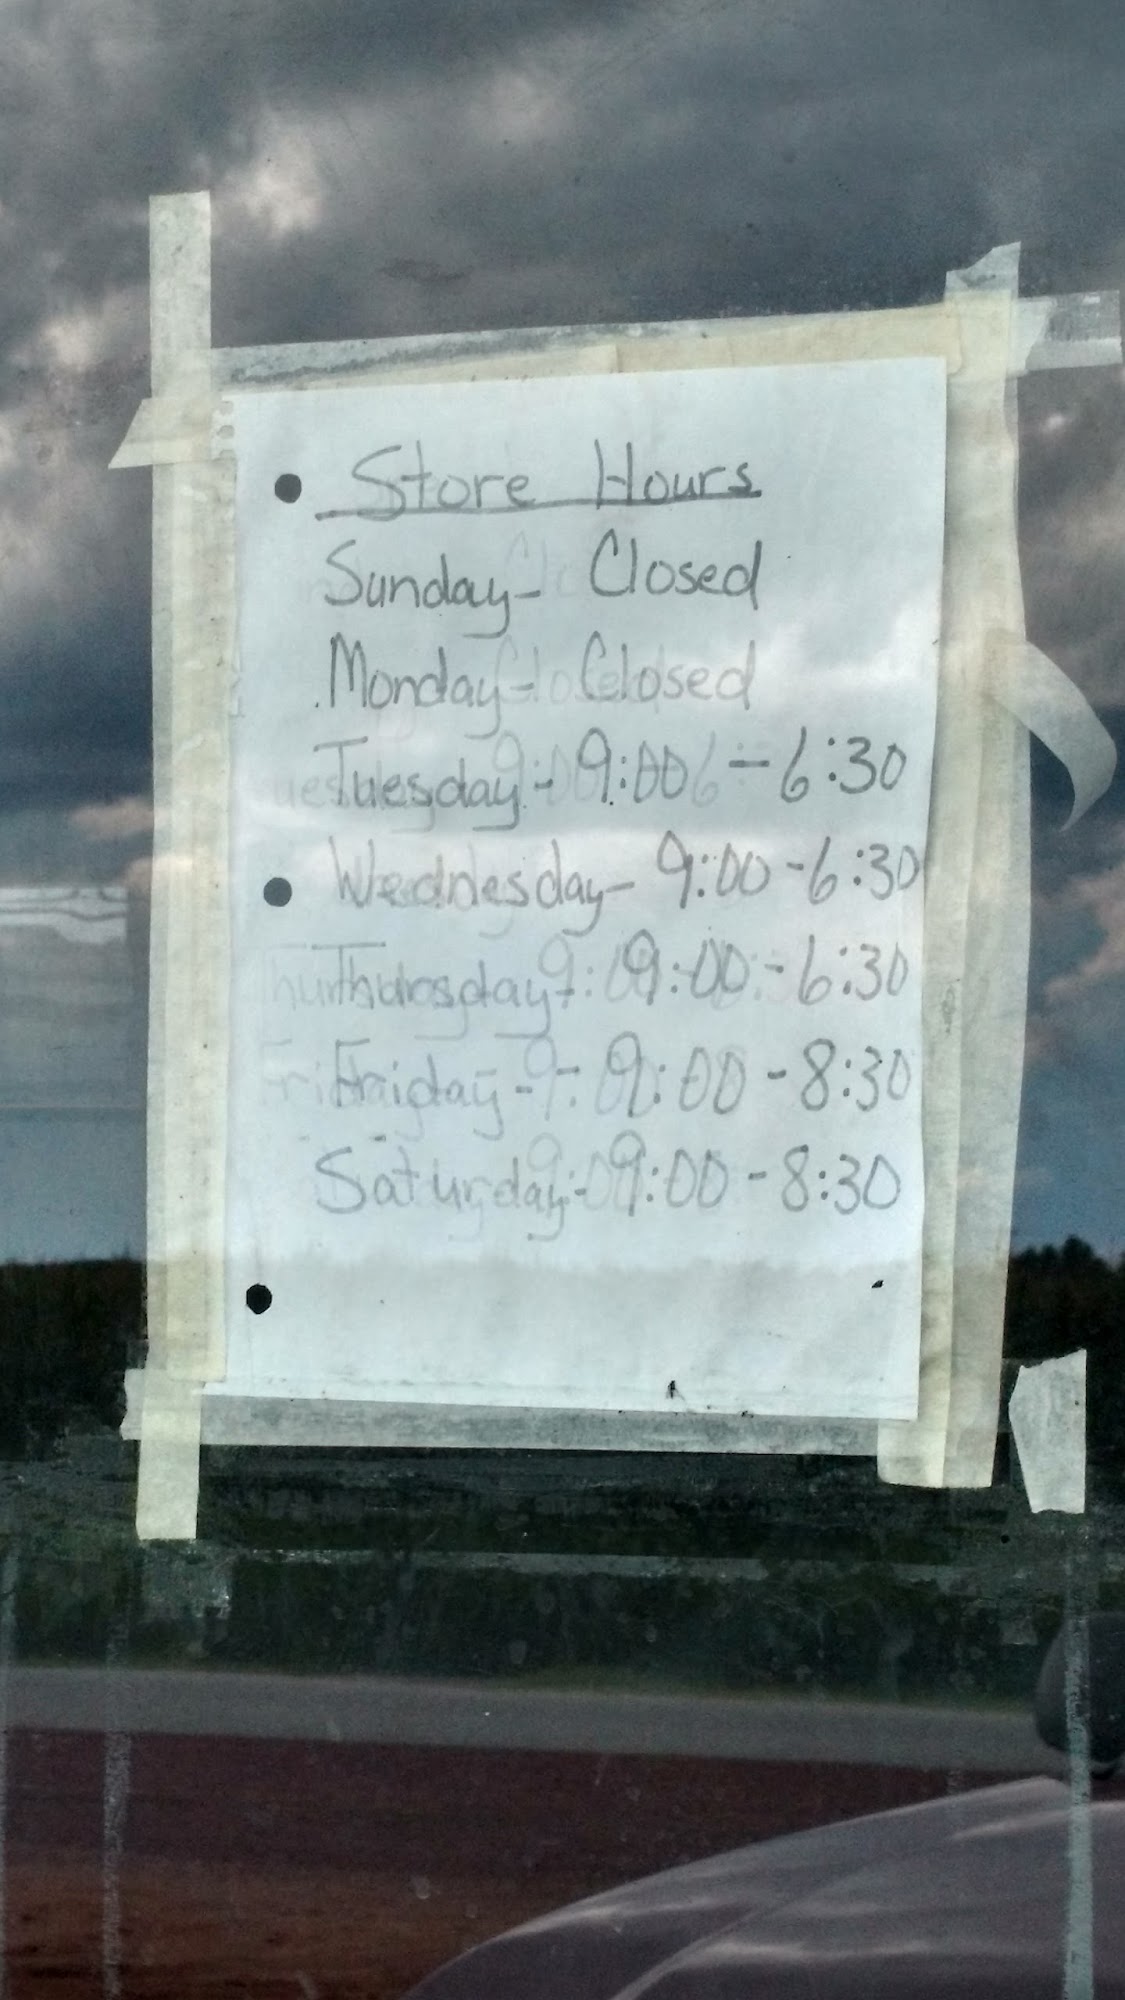 Store Hours
Sunday- Closed
Monday- Closed
Tuesday- 9:00 - 6:30
Wednesday- 9:00-6:30
Thursday- 9:00-6:30
Friday- 9:00-8:30
Saturday- 9:00-8:30